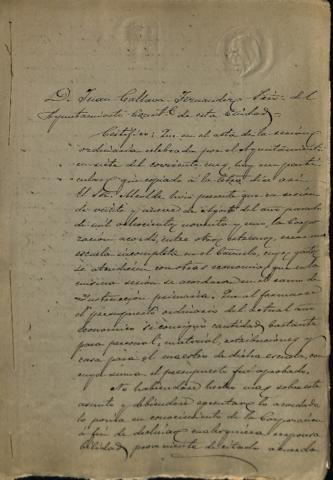 D. Juan Fernandez Srio. del
Ayuntamiento Constl. de esta Ciudad
Certifico: Que en el acta de la sesion
ordinaria celebrada por el Ayuntamiento
en siete del corriente mes, hay un parti-
cular, que copiado á la letra dice así
El Sr. Alcalde hizo presente que en sesión
de veinte y nueve de Agosto del año pasado
de mil ochocientos noventa y uno, la Corpo-
ración acordó, entre otros extremos, crear una
escuela incompleta en el cuyos gastos
se atendieran con otras economias que en la
misma sesión se acordaron en el ramo de
instrucción primaria. Que al formarse
el presupuesto ordinario del actual año
economico se consignó cantidad bastante
para personal, material, retribuciones y
casa para el maestro de dicha escuela, con
cuya suma el presupuesto fué aprobado.
No habiendose hecho mas sobre este
asunto y debiendose ejecutar lo acordado
lo ponia en conocimiento de la Corporacion
á fin de declinar cualesquiera responsa-
bilidad proveniente de citado acuerdo